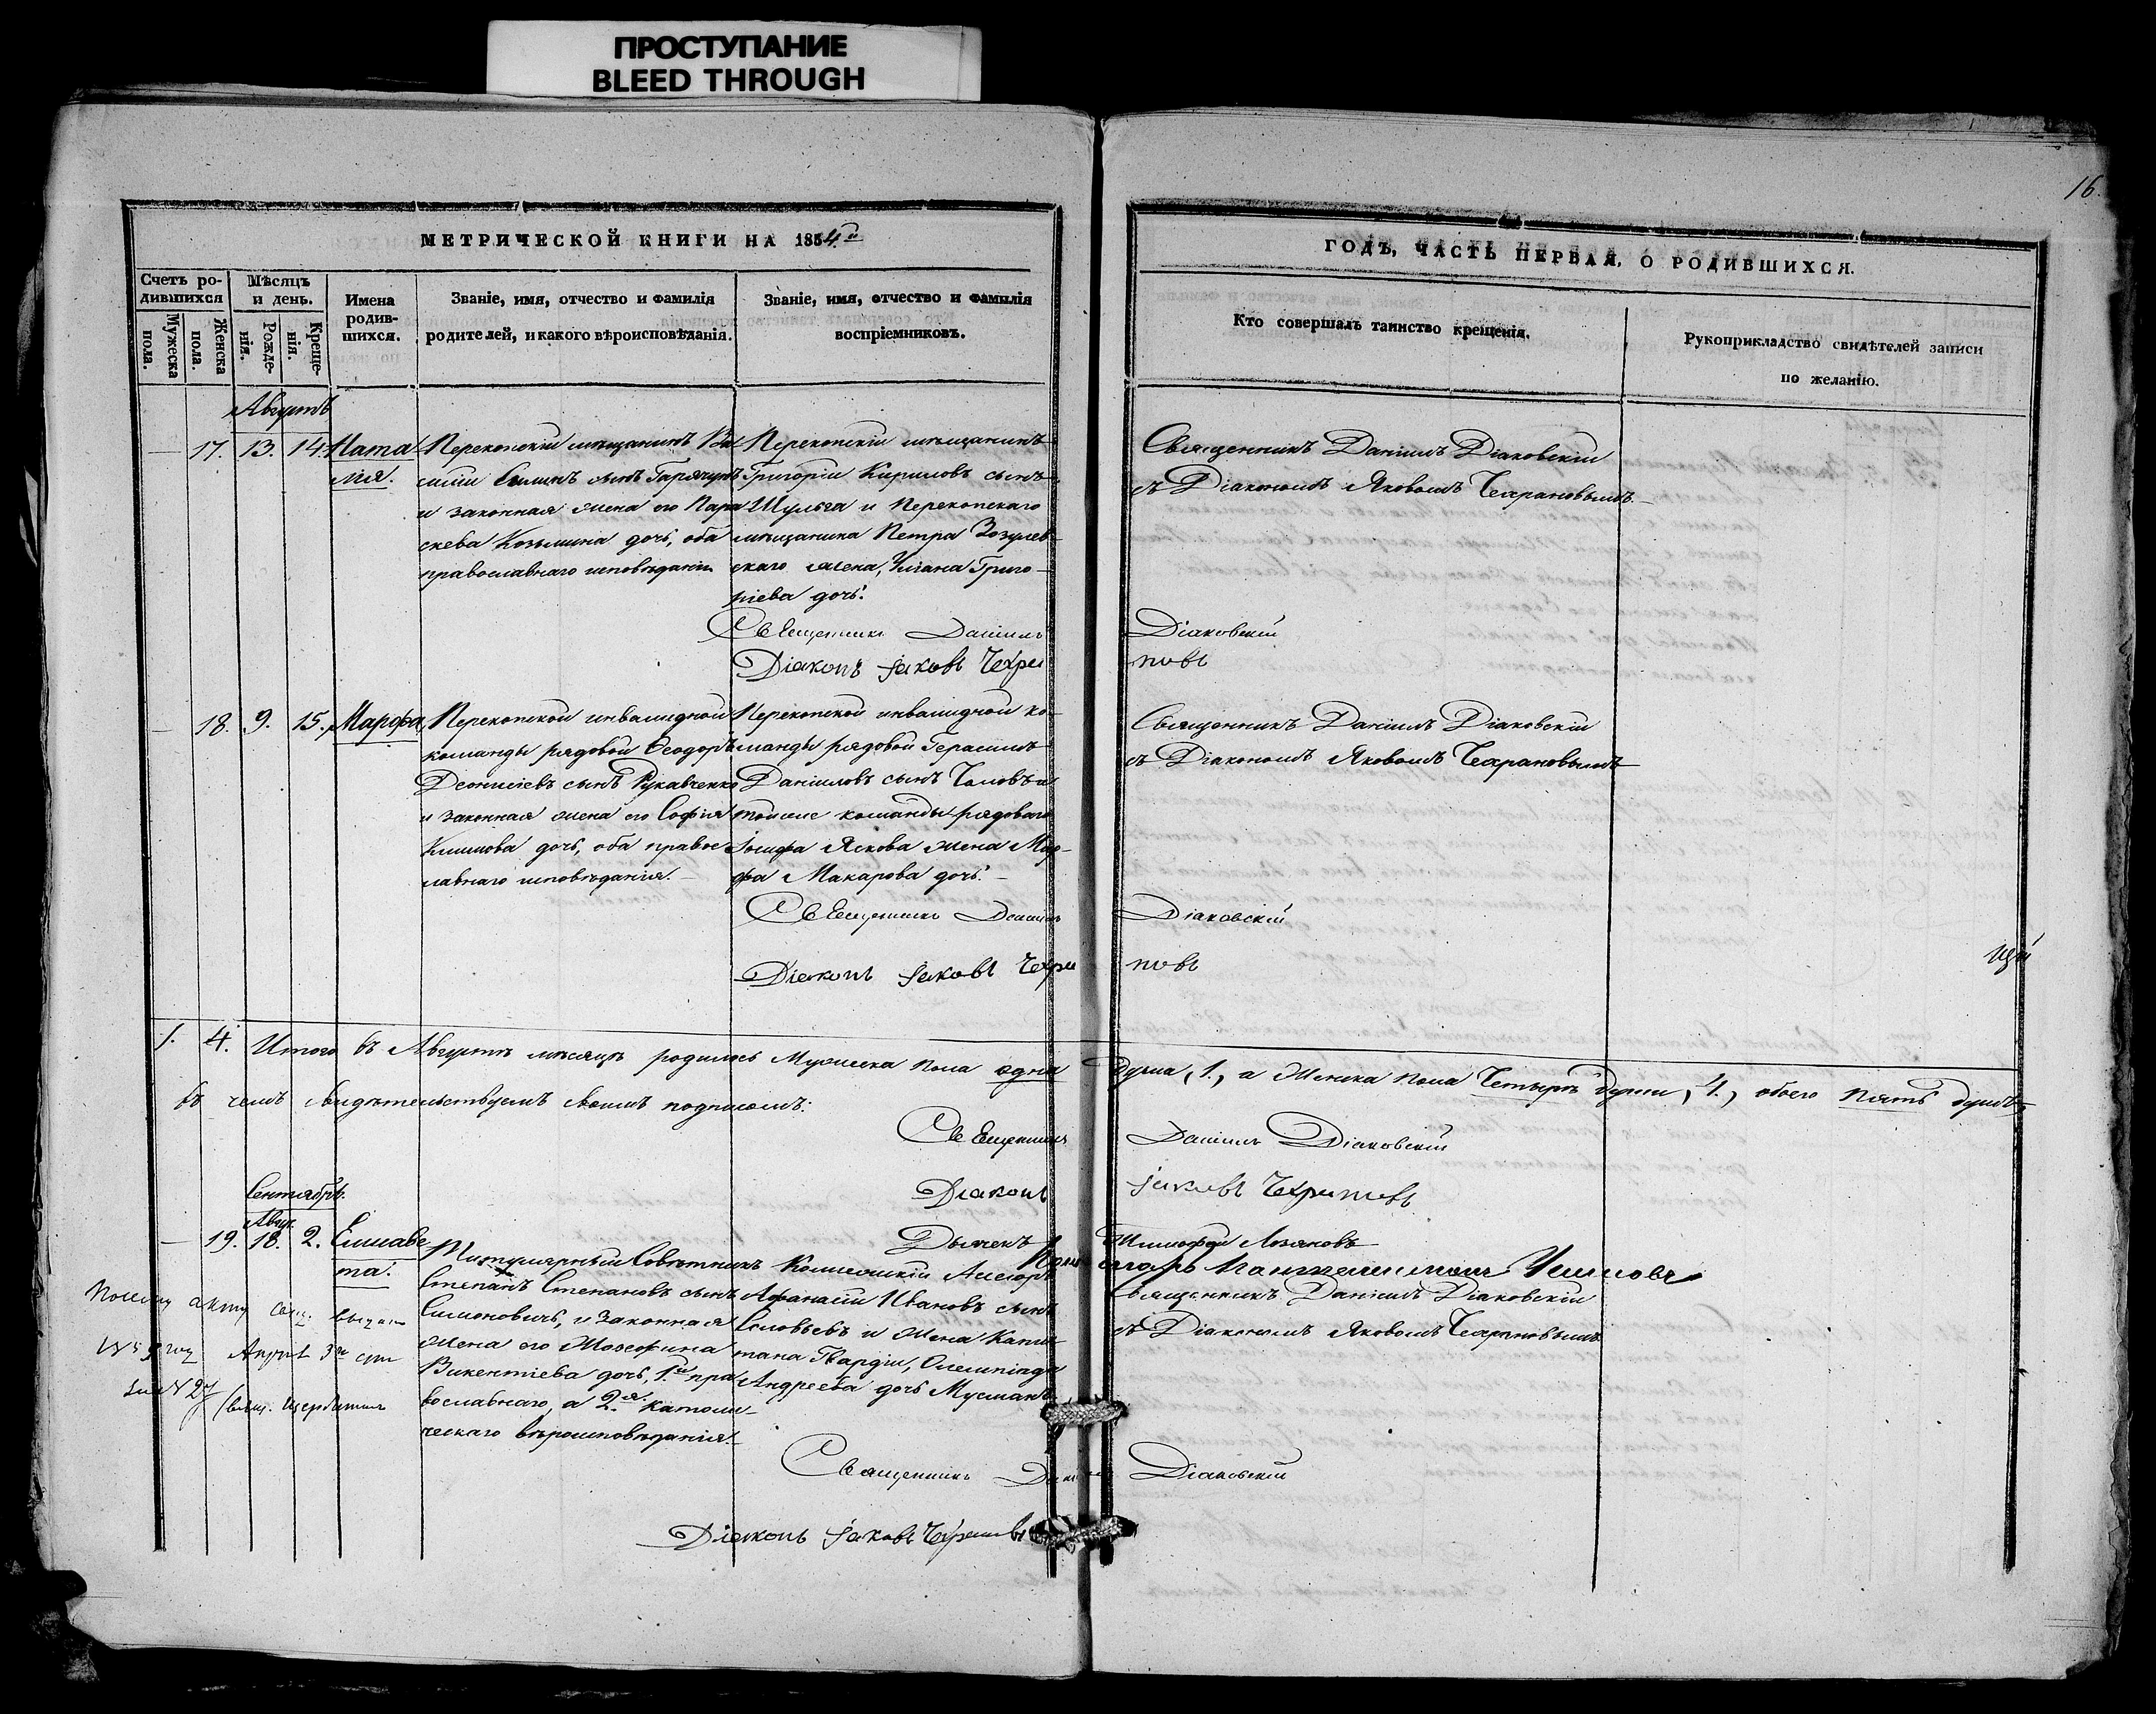 ПРОСТУПАНИЕ
BLEED THROUGH
16.
МЕТРИЧЕСКОЙ КНИГИ НА 1854й
ГОДЪ, ЧАСТЬ ПЕРВАЯ, О РОДИВШИХСЯ.
Счетъ ро-
дившихся
Мужеска
пола.
Женска
пола.
Мѣсяцъ
и день.
Рожде-
нія.
Креще-
нія.
Имена
родив-
шихся.
Званіе, имя, отчество и фамилія
родителей, и какого вѣроисповѣданія.
Званіе, имя, отчество и фамилія
воспріемниковъ.
Кто совершалъ таинство крещенія.
Рукоприкладство свидѣтелей записи
по желанію.
Августъ
17. 13. 14.
Ната
лія.
Перекопскій мѣщанинъ Ва
силій сынъ
и законная жена его Пара
скева Козьмина дочь, оба
православнаго исповѣданія
Перекопскій мѣщанинъ
Григорій Кириловъ сынъ
Шульга и Перекопскаго
мѣщанина Петра Зозулев-
скаго жена, Уліана Григо-
ріева дочь.
Священникъ Даніилъ Діаковскій
съ Діакономъ Яковомъ Чехрановымъ
Священникъ Даніилъ Діаковскій
Діаконъ Іаковъ Чехрановъ
18. 9. 15.
Марфа
Перекопской инвалидной
команды рядовой Ѳеодоръ
Деонисіевъ сынъ Рукавченко
и законная жена его Софія
Климова дочь, оба правос
лавнаго исповѣданія.
Перекопской инвалидной ко-
манды рядовой Герасимъ
Даніиловъ сынъ
тойже команды рядоваго
Іосифа Яскова жена Мар-
фа Макарова дочь.
Священникъ Даніилъ Діаковскій
съ Діакономъ Яковомъ Чехрановымъ
Священникъ Даніилъ Діаковскій
Діаконъ Іаковъ Чехрановъ
1. 4. Итого въ Августѣ мѣсяцѣ родилось Мужеска пола одна душа, 1., а Женска пола Четыре души, 4., обоего пять душъ
въ чемъ свидѣтельствуемъ своимъ подписомъ:
Священникъ Даніилъ Діаковскій
Діаконъ Іаковъ Чехрановъ
Дьячекъ Тимофей Лозановъ
Сентябрь.
Авгус.
19. 18. 2.
Елисаве
та.
Титулярный Совѣтникъ
Степанъ Степановъ сынъ
Симоновичъ, и законная
жена его Жозефина
Викентіева дочь, 1й пра
вославнаго, а 2я католи-
ческаго вѣроисповѣданія.
Колежскій Асесоръ
Афанасій Ивановъ сынъ
Соловьевъ и жена Капи-
тана Гвардіи, Олимпіада
Андреева дочь
Священникъ Даніилъ Діаковскій
съ Діакономъ Яковомъ Чехрановымъ
По сему акту
Апрѣля 3
№ 27
Священникъ Діаковскій
Діаконъ Іаковъ Чехрановъ